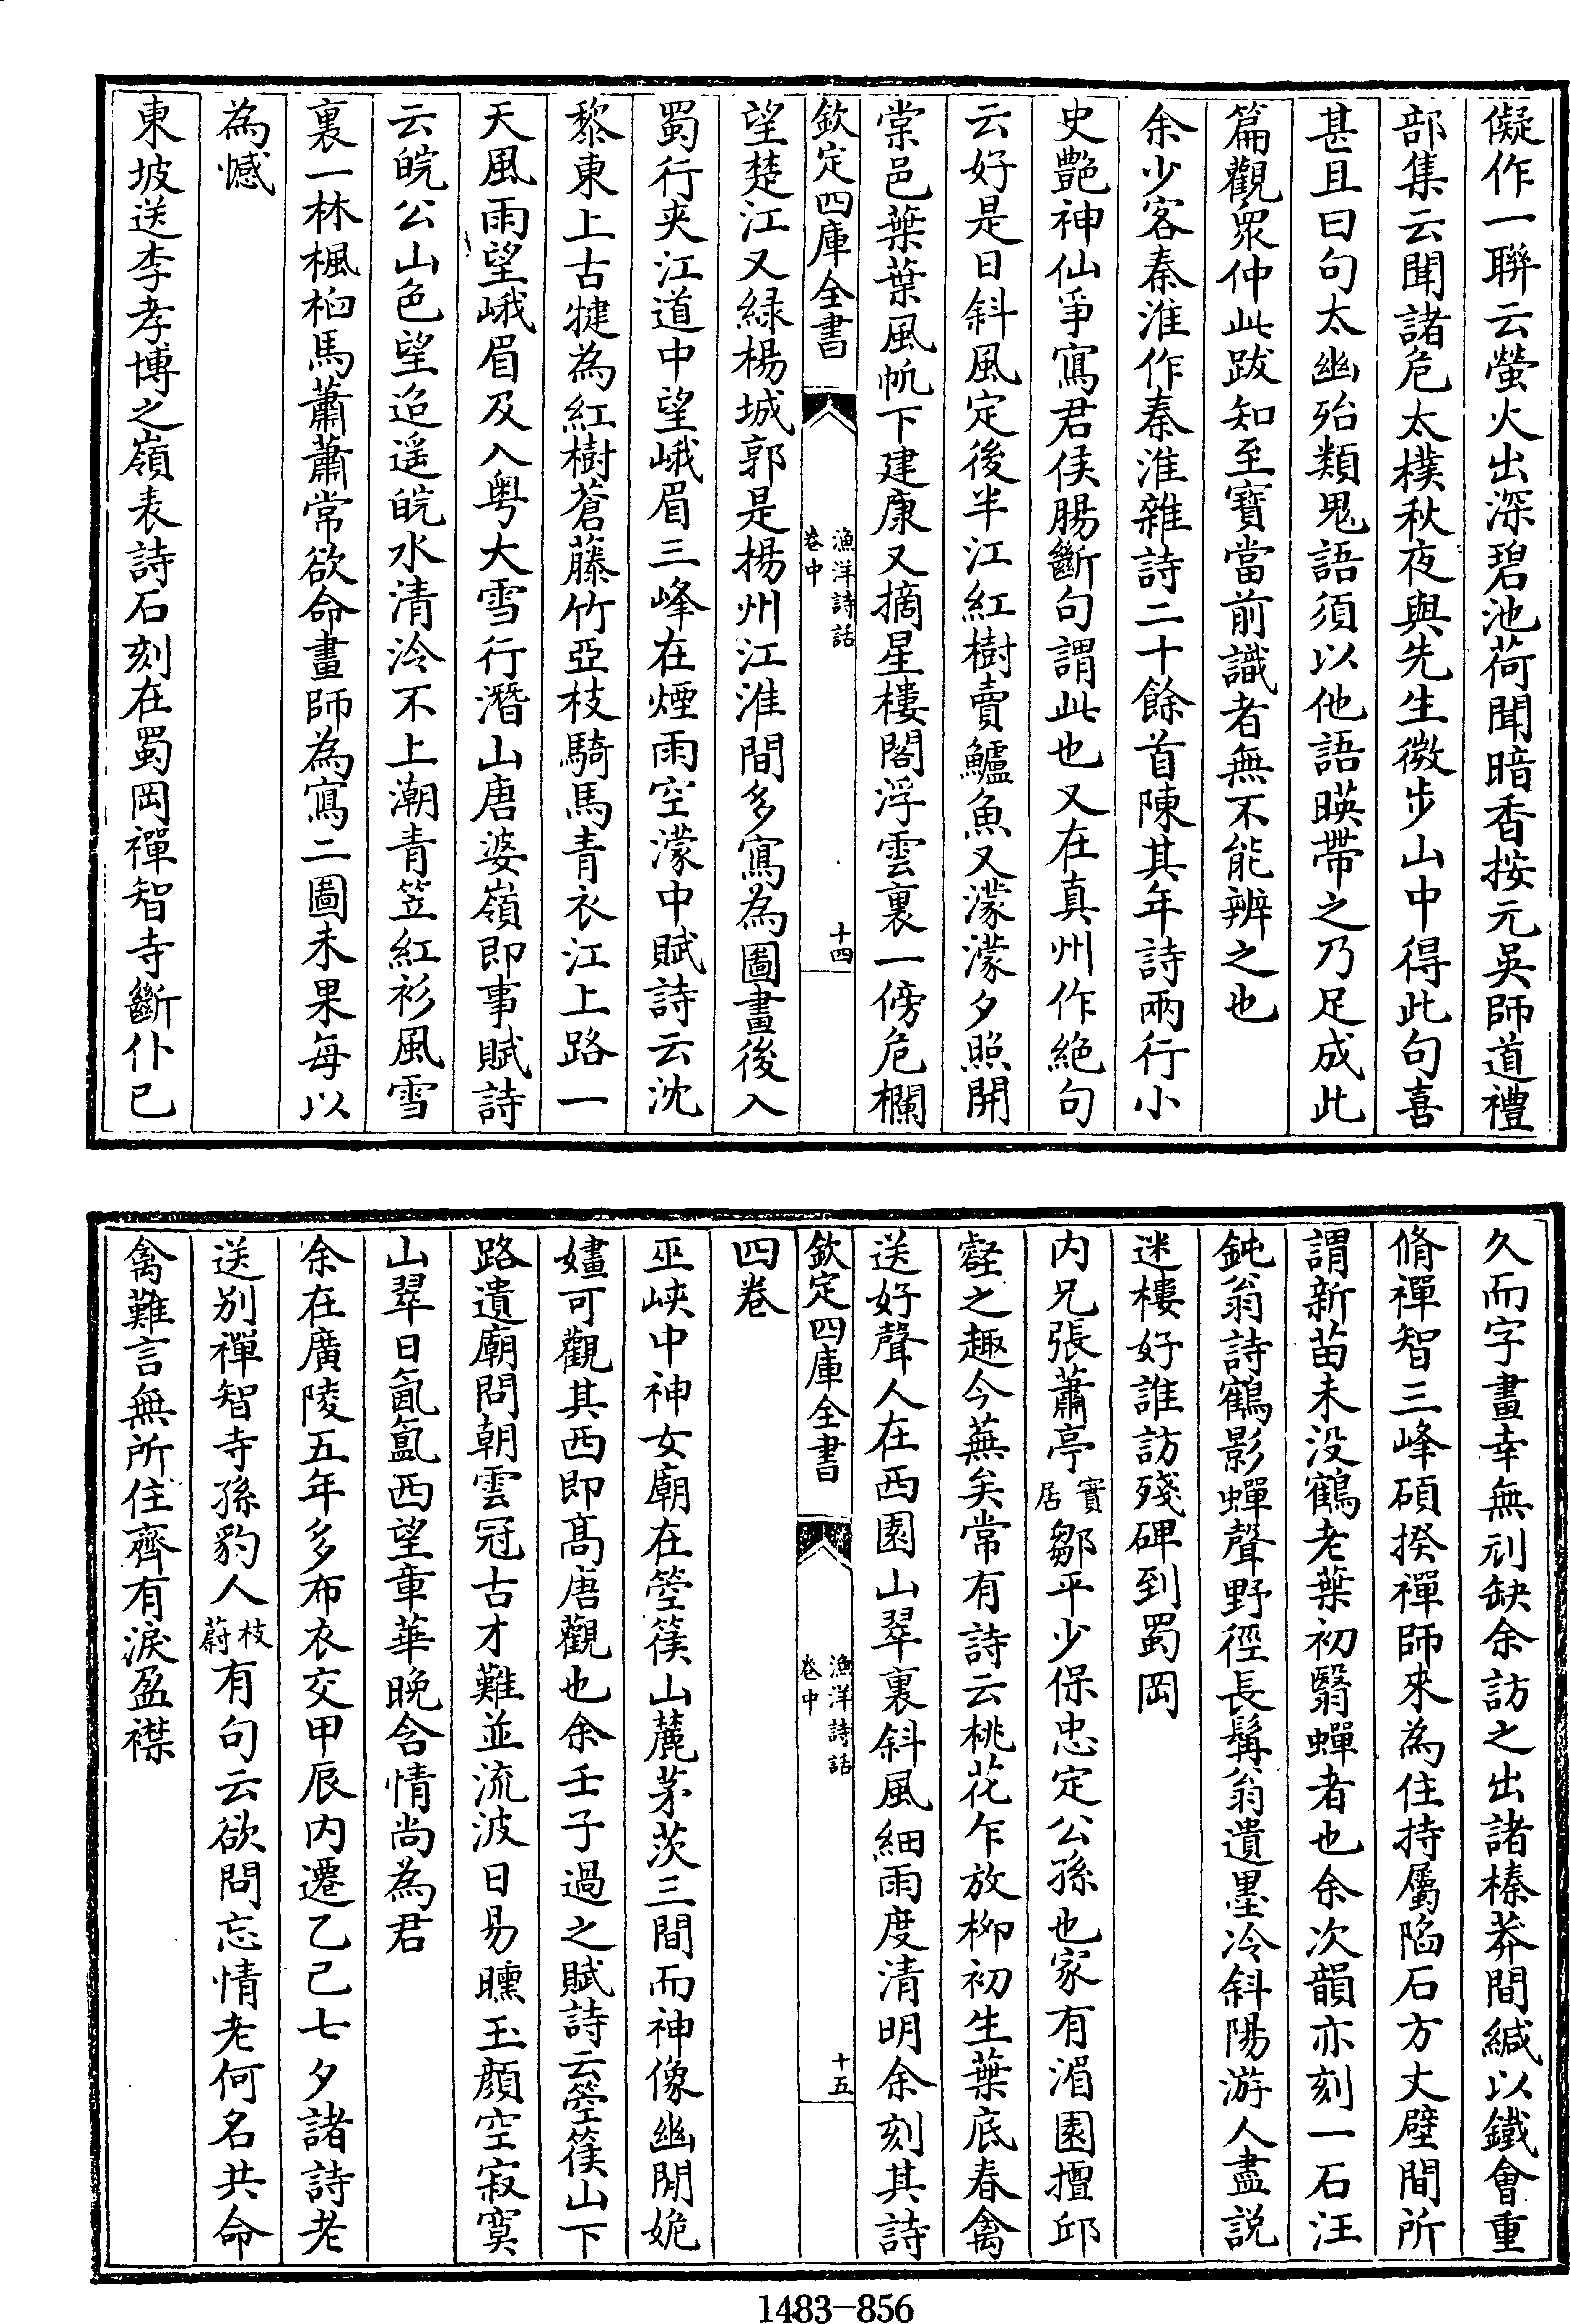 儗作一聯云螢火出深碧池荷聞暗香按元吳師道禮
部集云聞諸危太樸秋夜與先生微步山中得此句喜
甚且曰句太幽殆類鬼語須以他語暎帶之乃足成此
篇觀衆仲此跋知至寶當前識者無不能辨之也
余少客秦淮作秦淮雜詩二十餘首陳其年詩兩行小
史艷神仙爭寫君侯腸斷句謂此也又在真州作絶句
云好是日斜風定後半江紅樹賣鱸魚又濛濛夕照開
棠邑葉葉風帆下建康又摘星樓閣浮雲裏一傍危欄
欽定四庫全書
漁洋詩話
卷中
十四
望楚江又緑楊城郭是揚州江淮間多寫為圖畫後入
蜀行夾江道中望峨眉三峰在煙雨空濛中賦詩云沈
黎東上古犍為紅樹蒼藤竹亞枝騎馬青衣江上路一
天風雨望峨眉及入粤大雪行潛山唐婆嶺即事賦詩
云皖公山色望迢遥皖水清泠不上潮青笠紅衫風雪
裏一林楓桕馬蕭蕭常欲命畫師為寫二圖未果每以
為憾
東坡送李孝博之嶺表詩石刻在蜀岡禪智寺斷仆已
久而字畫幸無刓缺余訪之出諸榛莽間緘以鐵會重
脩禪智三峰碩揆禪師來為住持屬陷石方丈壁間所
謂新苗未没鶴老葉初翳蟬者也余次韻亦刻一石汪
鈍翁詩鶴影蟬聲野徑長髯翁遺墨冷斜陽游人盡説
迷樓好誰訪殘碑到蜀岡
内兄張蕭亭實居鄒平少保忠定公孫也家有湄園擅邱
壑之趣今蕪矣常有詩云桃花乍放柳初生葉底春禽
送好聲人在西園山翠裏斜風細雨度清明余刻其詩
欽定四庫全書
漁洋詩話
卷中
十五
四巻
巫峽中神女廟在箜篌山麓茅茨三間而神像幽閒姽
嫿可觀其西即髙唐觀也余壬子過之賦詩云箜篌山下
路遺廟問朝雲冠古才難並流波日易曛玉顔空寂寞
山翠日氤氲西望章華晚含情尚為君
余在廣陵五年多布衣交甲辰内遷乙己七夕諸詩老
送别禪智寺孫豹人枝蔚有句云欲問忘情老何名共命
禽難言無所住齊有淚盈襟
1483—856